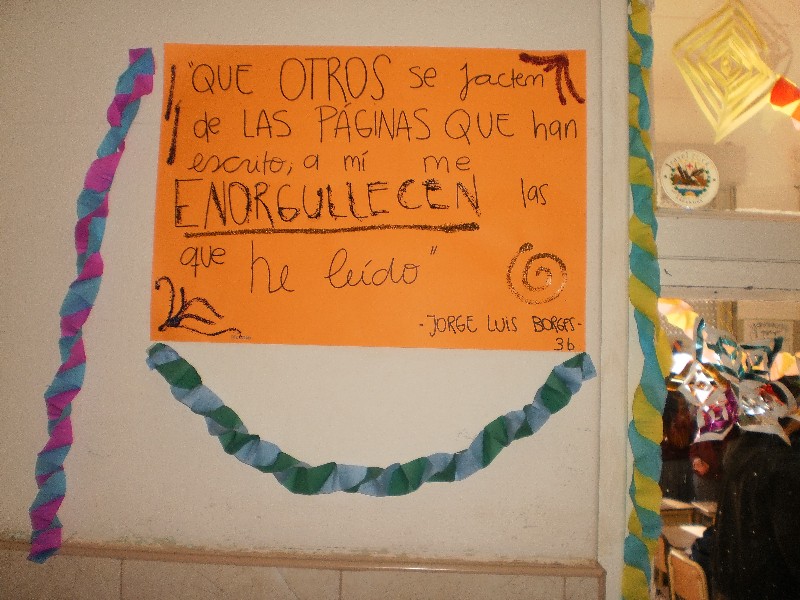 "QUE OTROS se jacten
de LAS PÁGINAS QUE han
escrito; a mí me
ENORGULLECEN las
que he leído"
-JORGE LUIS BORGES-
3b